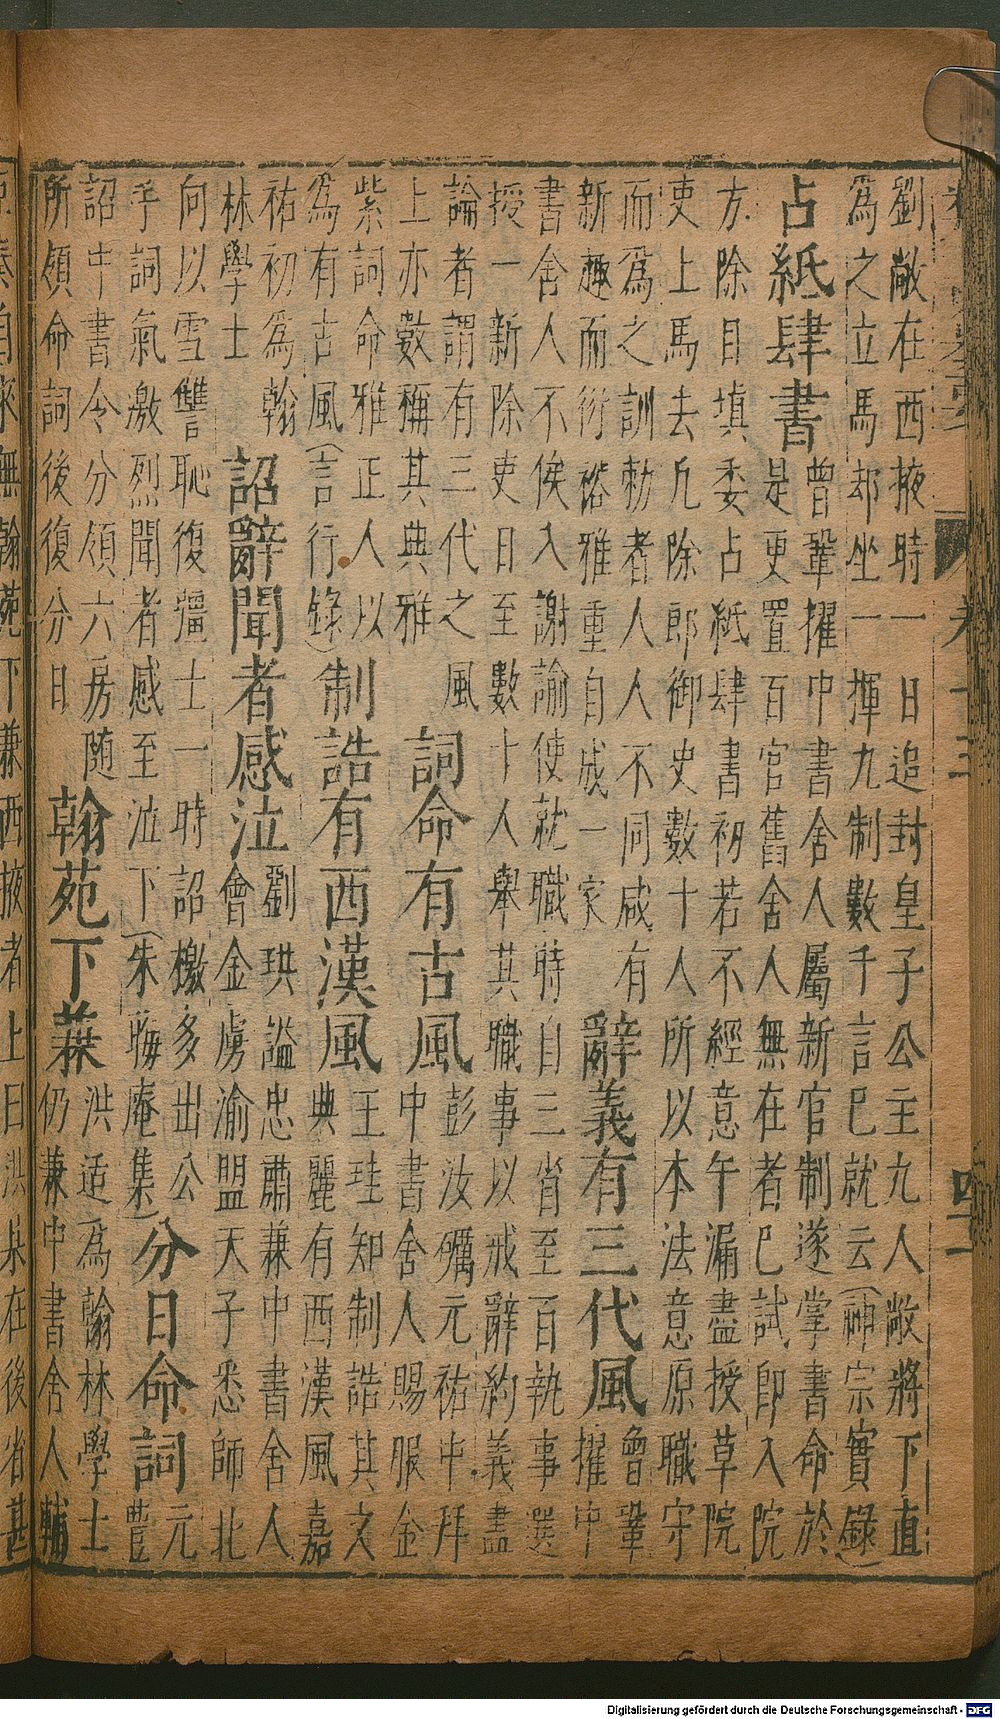 劉敞在西掖時一日追封皇子公主九人敞將下直
爲之立馬却坐一揮九制數千言已就云(神宗實錄)
占紙肆書
曾鞏擢中書舍人屬新官制遂掌書命於
是更置百官舊舍人無在者已試即入院
方除目填委占紙肆書初若不經意午漏盡授草院
吏上馬去凡除郎御史數十人所以本法意原職守
而爲之訓勅者人人不同咸有
新趣而衍裕雅重自成一家
辭義有三代風
曾鞏
擢中
書舍人不俟入謝諭使就職時自三省至百執事選
授一新除吏日至數十人舉其職事以戒辭約義盡
論者謂有三代之風
上亦數稱其典雅
詞命有古風
彭汝礪元祐中拜
中書舍人賜服金
紫詞命雅正人以
爲有古風(言行錄)
制誥有西漢風
王珪知制誥其文
典麗有西漢風嘉
祐初爲翰
林學士
詔辭聞者感泣
劉珙謚忠肅兼中書舍人
會金虜渝盟天子悉師北
向以雪讐恥復疆土一時詔檄多出公
手詞氣激烈聞者感至泣下(朱晦庵集)
分日命詞
元
豐
詔中書令分領六房随
所領命詞後復分日
翰苑下兼
洪适爲翰林學士
仍兼中書舍人輔
奏自來無翰苑下兼西掖者上曰洪某在後省甚
卷十三
四一
Digitalisierung gefördert durch die Deutsche Forschungsgemeinschaft - DFG